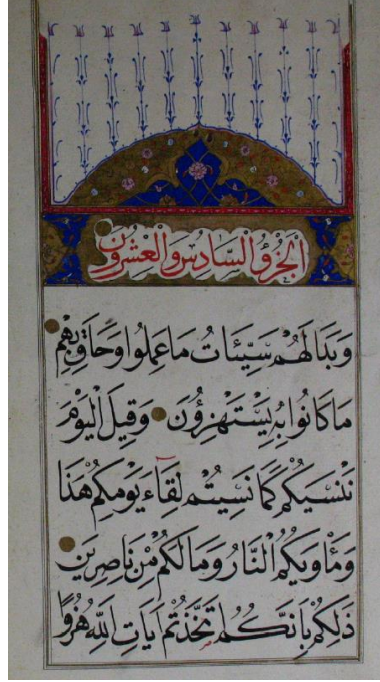 الجزؤ السادس والعشرون
وَبَدَا لَهُمْ سَيِّئَاتُ مَا عَمِلُوا وَحَاقَ بِهِمْ
مَا كَانُوا بِهِ يَسْتَهْزِؤُنَ وَقِيلَ الْيَوْمَ
نَنْسَيكُمْ كَمَا نَسِيتُمْ لِقَاءَ يَوْمِكُمْ هَذَا
وَمَأْوَيكُمُ النَّارُ وَمَا لَكُمْ مِنْ نَاصِرِينَ
ذَلِكُمْ بِأَنَّكُمُ اتَّخَذْتُمْ آيَاتِ اللَّهِ هُزُوًا